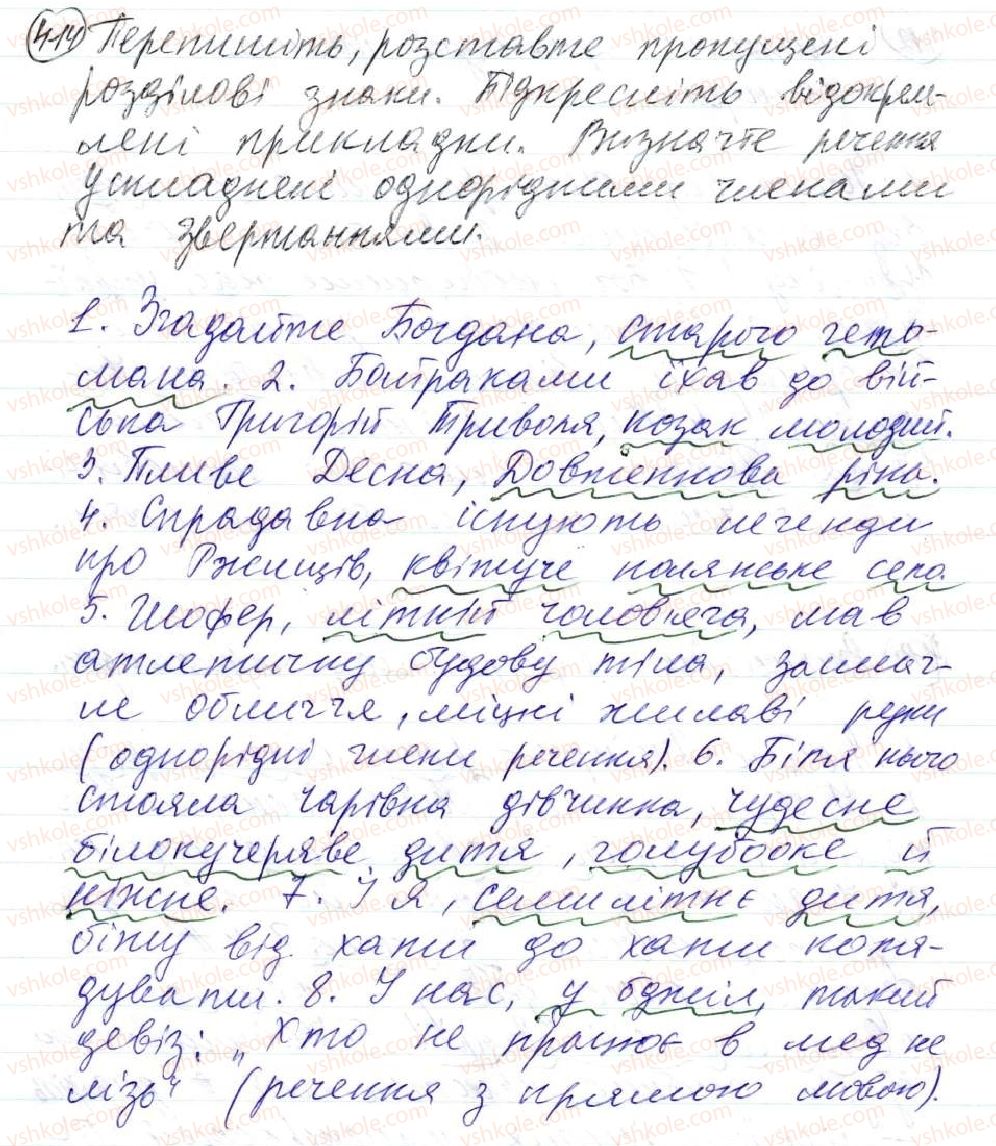 414 Перепишіть, розставте пропущені
розділові знаки. Підкресліть відокрем-
лені прикладки. Визначте речення
ускладнені однорідними членами
та звертаннями.
1. Згадайте Богдана, старого геть-
мана. 2. Байраками їхав до вій-
ська Григорій Триволя, козак молодий.
3. Пливе Десна, Довженкова ріка.
4. Спрадавна існують легенди
про Ржищів, квітуче полянське село.
5. Шофер, літній чоловяга, мав
атлетичну будову тіла, засмаг-
ле обличчя, міцні жилаві руки
(однорідні члени речення). 6. Біля нього
стояла чарівна дівчинка, чудесне
білокучеряве дитя, голубооке й
ніжне. 7. І я, семилітнє дитя,
біжу від хати до хати коля-
дувати. 8. У нас, у бджіл, такий
девіз: „Хто не працює в мед не
лізь" (речення з прямою мовою).